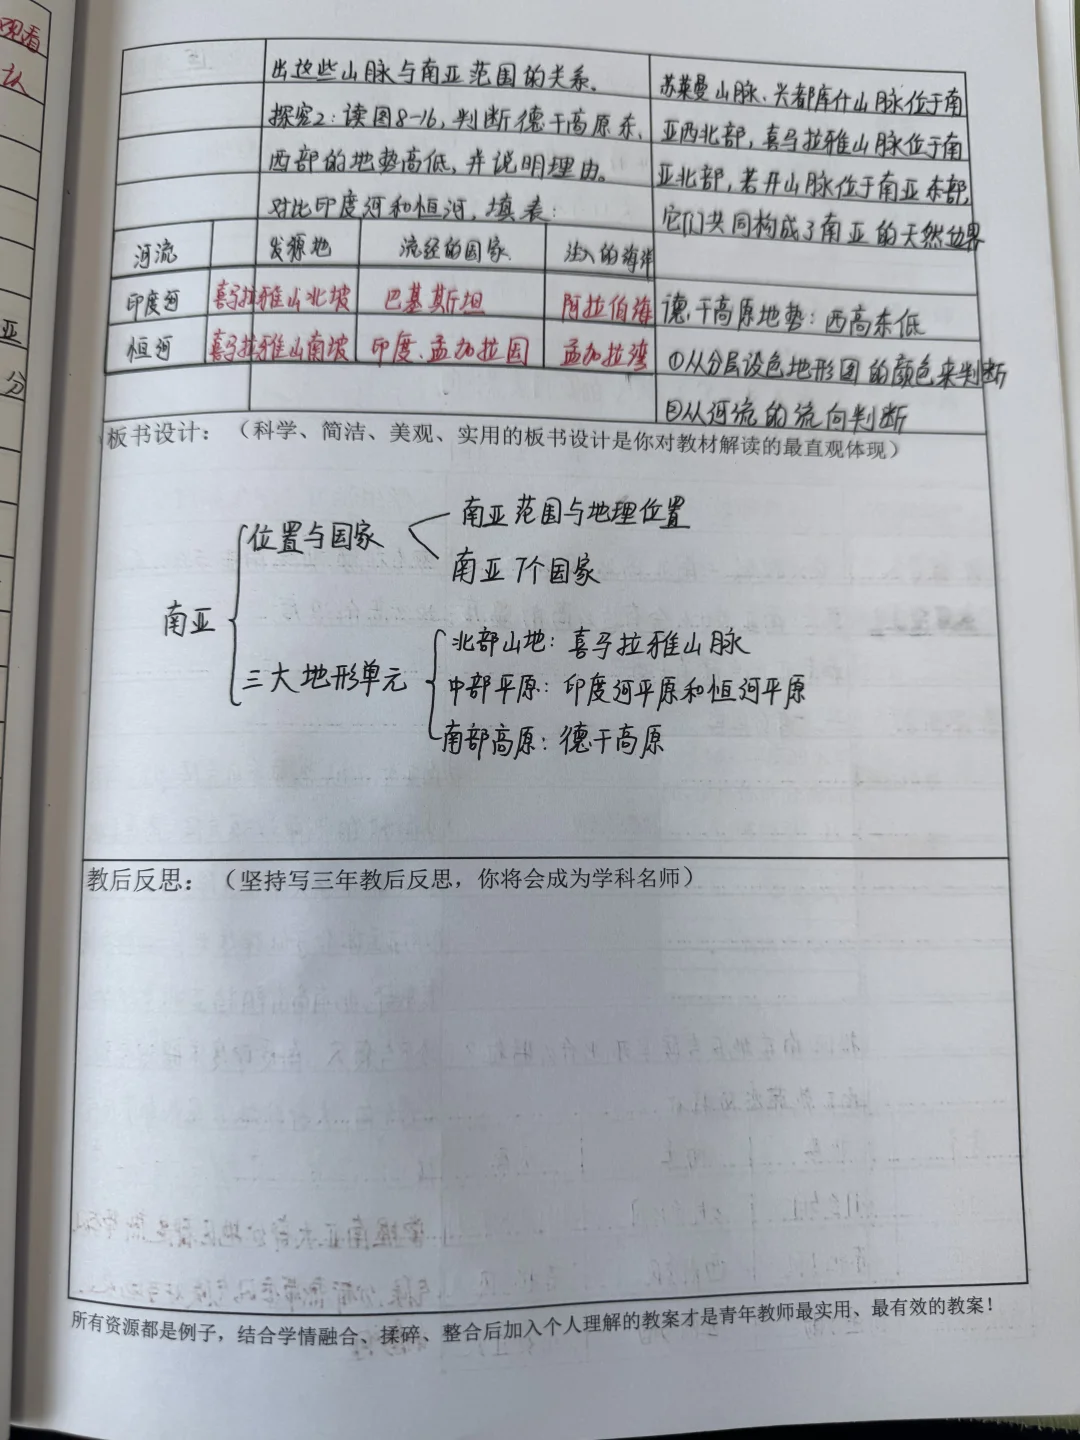 观看
亚
分
出这些山脉与南亚范围的关系.
探究2:读图8-16,判断德干高原东、
西部的地势高低,并说明理由。
对比印度河和恒河,填表:
苏莱曼山脉、兴都库什山脉位于南
亚西北部,喜马拉雅山脉位于南
亚北部,若开山脉位于南亚东部,
它们共同构成了南亚的天然边界
河流 发源地 流经的国家 注入的海洋
印度河 喜马拉雅山北坡 巴基斯坦 阿拉伯海
恒河 喜马拉雅山南坡 印度、孟加拉国 孟加拉湾
德干高原地势:西高东低
①从分层设色地形图的颜色来判断
②从河流的流向判断
板书设计:(科学、简洁、美观、实用的板书设计是你对教材解读的最直观体现)
南亚
位置与国家
南亚范围与地理位置
南亚7个国家
三大地形单元
北部山地:喜马拉雅山脉
中部平原:印度河平原和恒河平原
南部高原:德干高原
教后反思:(坚持写三年教后反思,你将会成为学科名师)
所有资源都是例子,结合学情融合、揉碎、整合后加入个人理解的教案才是青年教师最实用、最有效的教案!